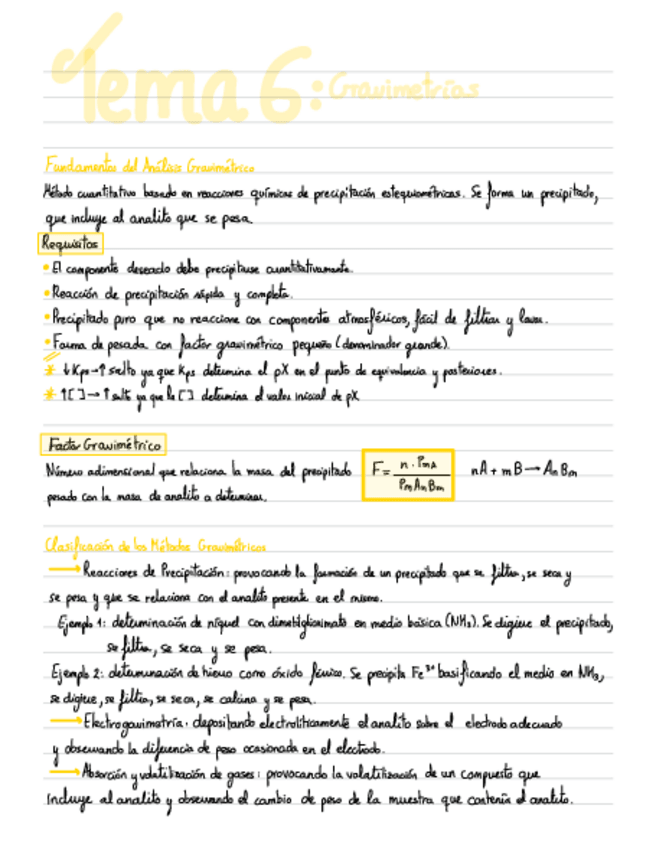 Tema 6: Gravimetrías
Fundamentos del Análisis Gravimétrico
Método cuantitativo basado en reacciones químicas de precipitación estequiométricas. Se forma un precipitado,
que incluye al analito que se pesa.
Requisitos
• El componente deseado debe precipitarse cuantitativamente.
• Reacción de precipitación rápida y completa.
• Precipitado puro que no reaccione con componentes atmosféricos, fácil de filtrar y lavar.
• Forma de pesada con factor gravimétrico pequeño (denominador grande).
* ↓Kps→↑salto ya que Kps determina el pX en el punto de equivalencia y posteriores.
* ↑[ ]→↑salto ya que la [ ] determina el valor inicial de pX
Factor Gravimétrico
Número adimensional que relaciona la masa del precipitado
pesado con la masa de analito a determinar.
F = n · PmA / PmAnBm
nA + mB → AnBm
Clasificación de los Métodos Gravimétricos
→ Reacciones de Precipitación: provocando la formación de un precipitado que se filtra, se seca y
se pesa y que se relaciona con el analito presente en el mismo.
Ejemplo 1: determinación de níquel con dimetilglioximato en medio básica (NH₃). Se digiere el precipitado,
se filtra, se seca y se pesa.
Ejemplo 2: determinación de hierro como óxido férrico. Se precipita Fe³⁺ basificando el medio en NH₃,
se digiere, se filtra, se seca, se calcina y se pesa.
→ Electrogravimetría: depositando electrolíticamente el analito sobre el electrodo adecuado
y observando la diferencia de peso ocasionada en el electrodo.
→ Absorción y volatilización de gases: provocando la volatilización de un compuesto que
incluye al analito y observando el cambio de peso de la muestra que contenía el analito.